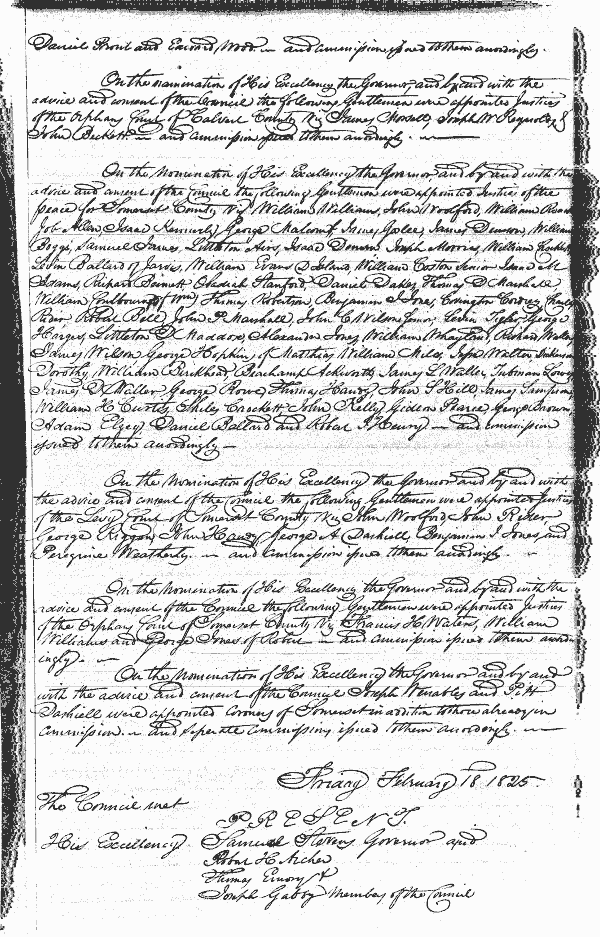 Daniel Prout and Edward Wood — and commission issued to them accordingly.
On the nomination of His Excellency the Governor, and by and with the
advice and consent of the Council the following Gentlemen were appointed Justices
of the Orphans Court of Calvert County Viz James Morsell, Joseph W Reynolds, &
John Beckett — and commission issued to them accordingly. —
On the Nomination of His Excellency the Governor, and by and with the
advice and consent of the Council the following Gentlemen were appointed Justices of the
peace for Somerset County Viz William Williams, John Woolford, William
Job Allen, Isaac Kennerly, George Malcomb, James Denson, William
Boggs, Samuel James, Littleton Aires, Isaac Denson, Joseph Morris, William
Levin Ballard of Jarvis, William Evans D Island, William Costen Senior Isaac M
Adams, Richard Barnett Obediah Stanford, Daniel Dakes, Thomas D Marshall,
William Coulbourn of Wm, Thomas Robertson, Benjamin I Jones, Covington
Robert Bell, John P. Marshall, John C Wilson Junior, Levin Tyler, George
Hargis, Littleton D Maddox, Alexander Jones, William Whayland, Richard
James Wilson, George Hopkins of Matthias William Miles, Walter
Dorothy, William Birkhead, Beauchamp Ackworth, James L Waller, Tubman Lowes
James D Miller, George Rowe, Thomas Handy, John S Hill, James Sampson,
William H Curtis, Shiles Crockett, John Kelly, Gideon Pearce, George Brown,
Adam Elzey, Daniel Ballard and Robert J Henry — and commission
issued to them accordingly —
On the Nomination of His Excellency the Governor and by and with
the advice and consent of the Council the following Gentlemen were appointed Justices
of the Levy Court of Somerset County Viz John Woolford, John Riker
George Riggon, John Handy, George A Dashiell, Benjamin I Jones, and
Peregrine Weatherly. — and commission issued to them accordingly. —
On the Nomination of His Excellency the Governor and by and with the
advice and consent of the Council the following Gentlemen were appointed Justices
of the Orphans Court of Somerset County Viz Francis H Waters, William
Williams and George Jones of Robert — and commission issued to them accord
ingly. —
On the Nomination of His Excellency the Governor and by and
with the advice and consent of the Council Joseph Venables and
Dashiell were appointed Coroners of Somerset in addition to those already in
commission. — and seperate commissions issued to them accordingly. —
Friday February 18 1825.
The Council met
PRESENT.
His Excellency Samuel Stevens Governor and
Robert H Archer
Thomas Emory &
Joseph Gabby Members of the Council